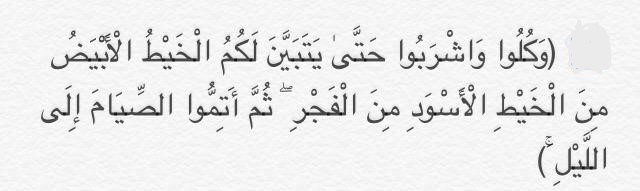 (وَكُلُوا وَاشْرَبُوا حَتَّىٰ يَتَبَيَّنَ لَكُمُ الْخَيْطُ الْأَبْيَضُ
مِنَ الْخَيْطِ الْأَسْوَدِ مِنَ الْفَجْرِ ۖ ثُمَّ أَتِمُّوا الصِّيَامَ إِلَى
اللَّيْلِ ۚ)